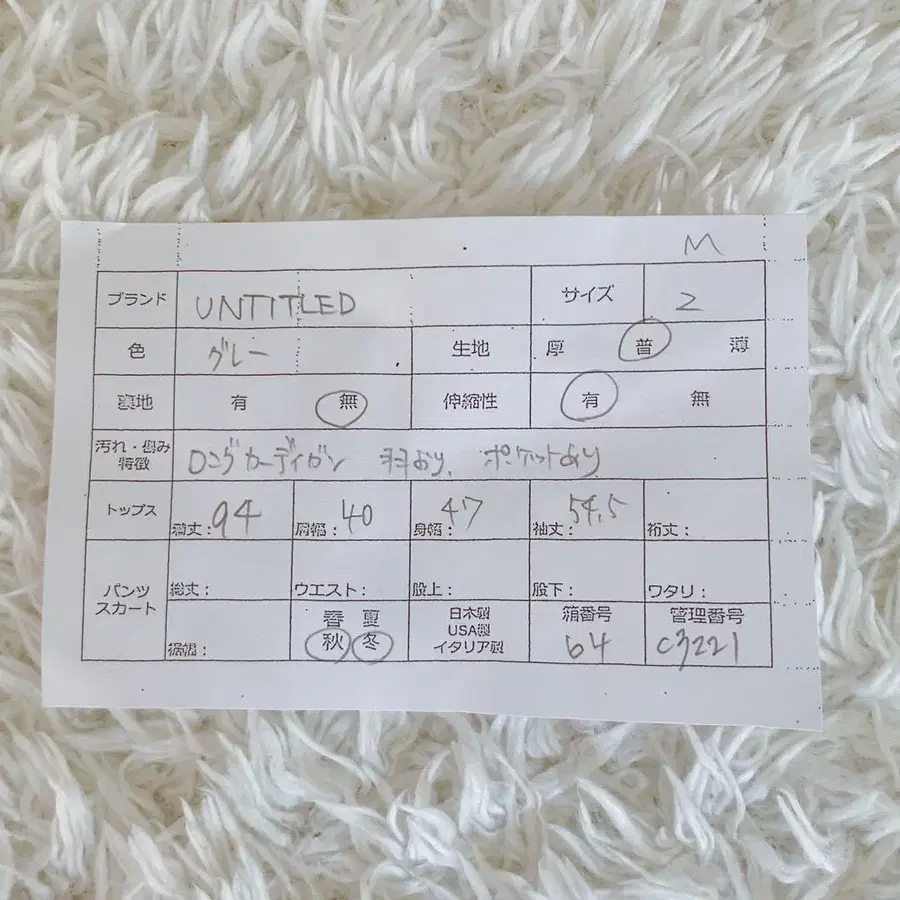 M
ブランド UNTITLED サイズ 2
色 グレー 生地 厚 普 薄
裏地 有 無 伸縮性 有 無
汚れ・傷み
特徴 ロングカーディガン ポケットあり
トップス 着丈: 94 肩幅: 40 身幅: 47 袖丈: 54.5 裄丈:
パンツ
スカート 総丈: ウエスト: 股上: 股下: ワタリ:
裾幅: 春 夏
秋 冬 日本製
USA製
イタリア製 箱番号
64 管理番号
C3221